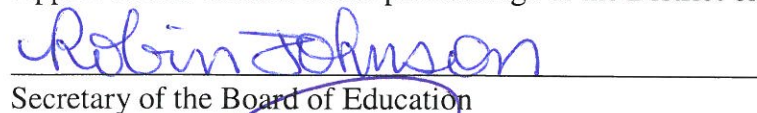 Robin Johnson
Secretary of the Board of Education